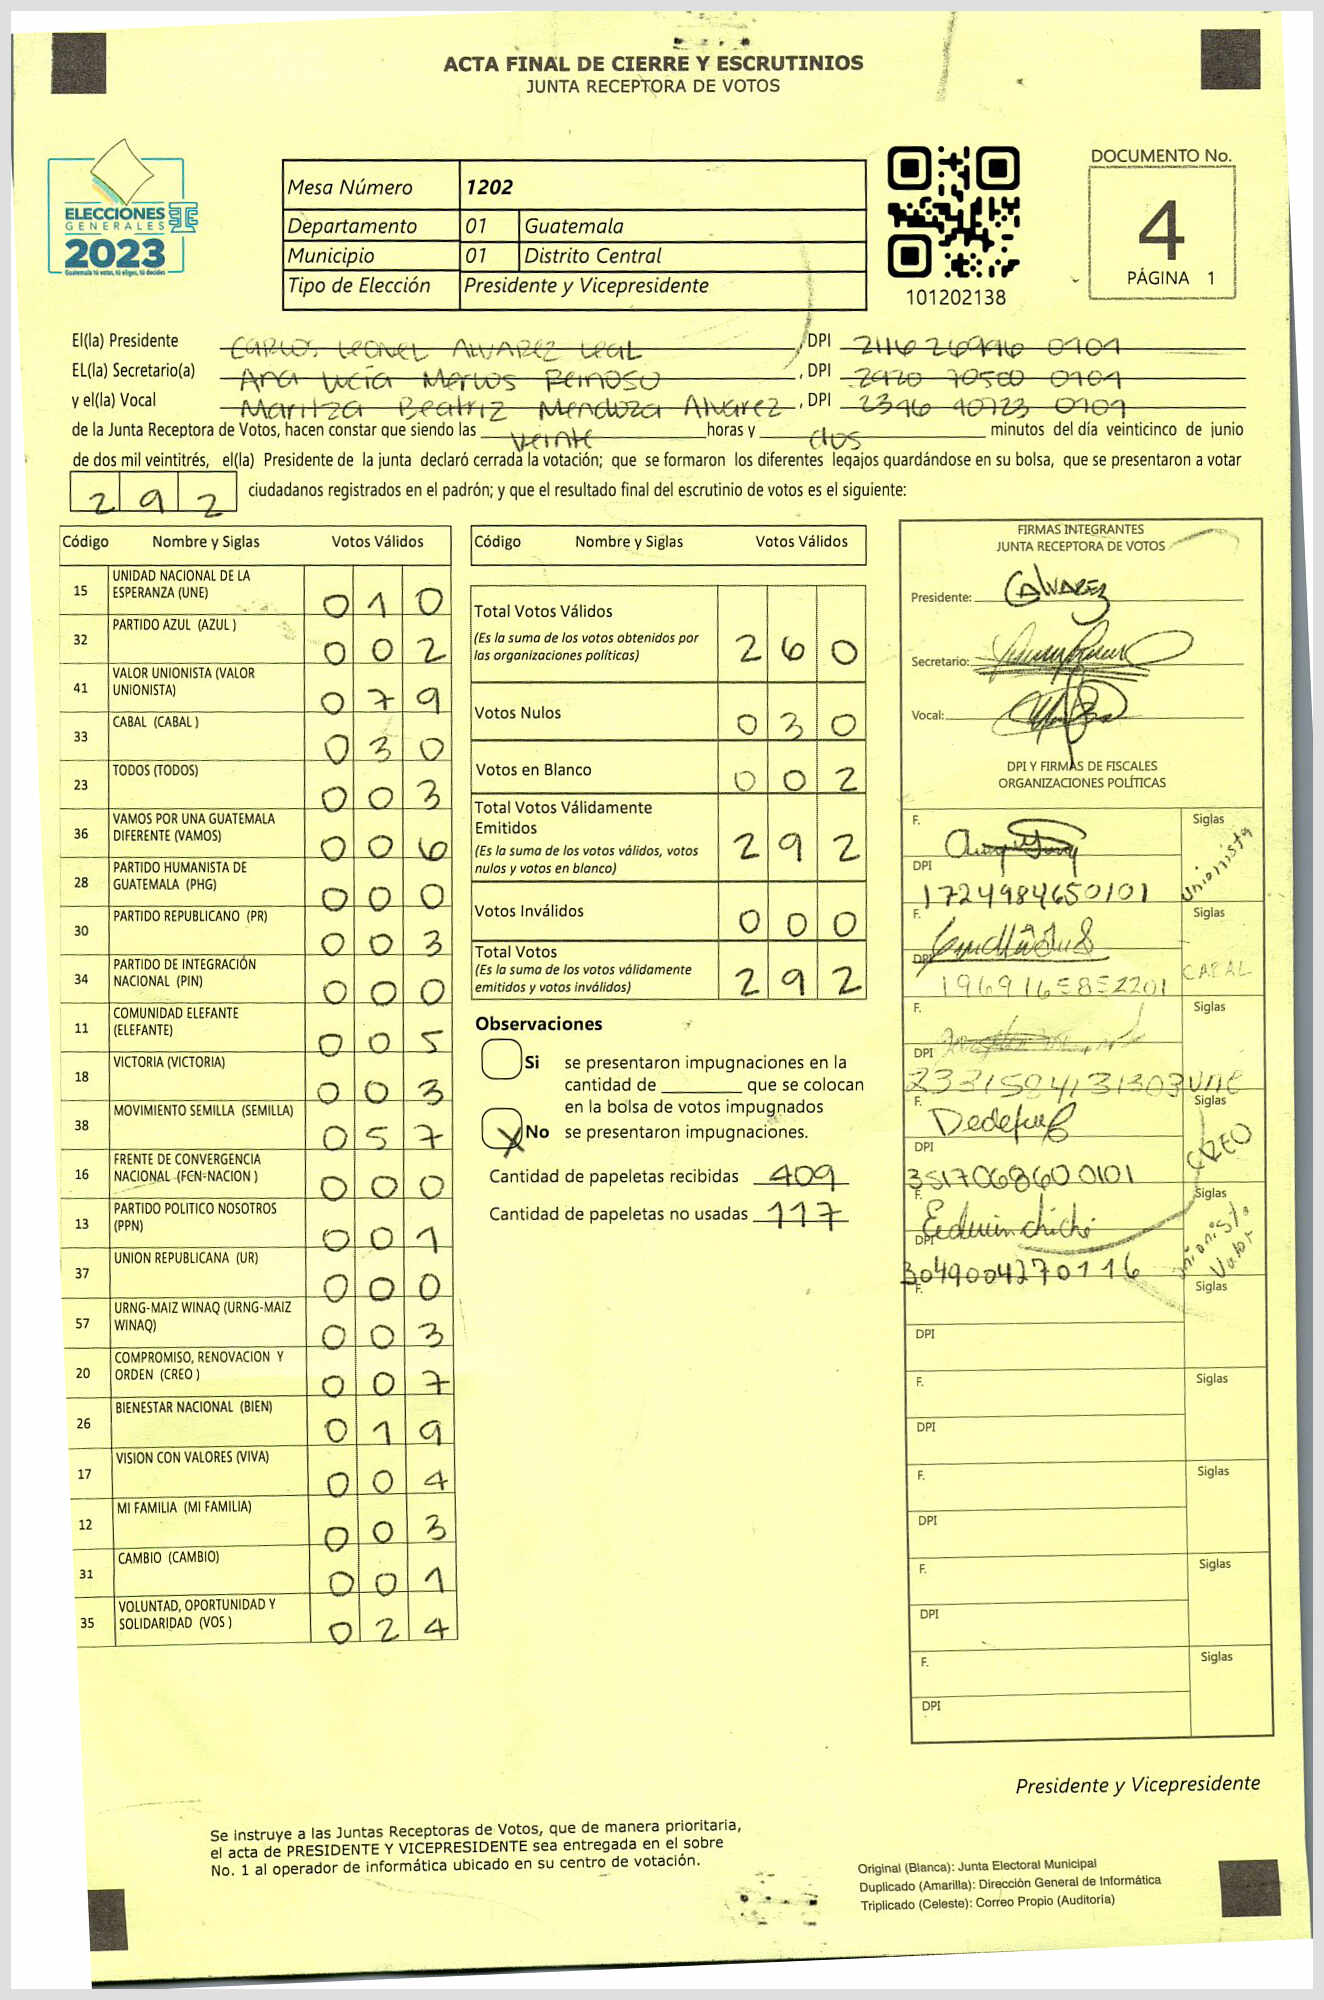 ACTA FINAL DE CIERRE Y ESCRUTINIOS
JUNTA RECEPTORA DE VOTOS
ELECCIONES
GENERALES
2023
Guatemala tú votas, tú eliges, tú decides
Mesa Número 1202
Departamento 01 Guatemala
Municipio 01 Distrito Central
Tipo de Elección Presidente y Vicepresidente
101202138
DOCUMENTO No.
4
PÁGINA 1
El(la) Presidente CARLOS LEONEL ALVAREZ LEAL, DPI 2116 26996 0101
EL(la) Secretario(a) Ana Lucía Merlos Reinoso, DPI 2920 70500 0101
y el(la) Vocal Maritza Beatriz Mendoza Alvarez, DPI 2346 40723 0101
de la Junta Receptora de Votos, hacen constar que siendo las veinte horas y dos minutos del día veinticinco de junio
de dos mil veintitrés, el(la) Presidente de la junta declaró cerrada la votación; que se formaron los diferentes legajos guardándose en su bolsa, que se presentaron a votar
292 ciudadanos registrados en el padrón; y que el resultado final del escrutinio de votos es el siguiente:
Código Nombre y Siglas Votos Válidos
15 UNIDAD NACIONAL DE LA ESPERANZA (UNE) 010
32 PARTIDO AZUL (AZUL ) 002
41 VALOR UNIONISTA (VALOR UNIONISTA) 079
33 CABAL (CABAL ) 030
23 TODOS (TODOS) 003
36 VAMOS POR UNA GUATEMALA DIFERENTE (VAMOS) 006
28 PARTIDO HUMANISTA DE GUATEMALA (PHG) 000
30 PARTIDO REPUBLICANO (PR) 003
34 PARTIDO DE INTEGRACIÓN NACIONAL (PIN) 000
11 COMUNIDAD ELEFANTE (ELEFANTE) 005
18 VICTORIA (VICTORIA) 003
38 MOVIMIENTO SEMILLA (SEMILLA) 057
16 FRENTE DE CONVERGENCIA NACIONAL (FCN-NACION ) 000
13 PARTIDO POLITICO NOSOTROS (PPN) 001
37 UNION REPUBLICANA (UR) 000
57 URNG-MAIZ WINAQ (URNG-MAIZ WINAQ) 003
20 COMPROMISO, RENOVACION Y ORDEN (CREO ) 007
26 BIENESTAR NACIONAL (BIEN) 019
17 VISION CON VALORES (VIVA) 004
12 MI FAMILIA (MI FAMILIA) 003
31 CAMBIO (CAMBIO) 001
35 VOLUNTAD, OPORTUNIDAD Y SOLIDARIDAD (VOS ) 024
Código Nombre y Siglas Votos Válidos
Total Votos Válidos 260
(Es la suma de los votos obtenidos por
las organizaciones políticas)
Votos Nulos 030
Votos en Blanco 002
Total Votos Válidamente
Emitidos 292
(Es la suma de los votos válidos, votos
nulos y votos en blanco)
Votos Inválidos 000
Total Votos 292
(Es la suma de los votos válidamente
emitidos y votos inválidos)
Observaciones
Si se presentaron impugnaciones en la
cantidad de ________ que se colocan
en la bolsa de votos impugnados
X No se presentaron impugnaciones.
Cantidad de papeletas recibidas 409
Cantidad de papeletas no usadas 117
FIRMAS INTEGRANTES
JUNTA RECEPTORA DE VOTOS
Presidente: CAlvarez
Secretario:
Vocal:
DPI Y FIRMAS DE FISCALES
ORGANIZACIONES POLÍTICAS
F. Siglas Unionista
DPI 1724984650101
F. Siglas CABAL
DPI 1969165852201
F. Siglas UNE
DPI 2331504131303
F. Siglas CREO
DPI 3517068600101
F. Edwin chiché Siglas Unionista Valor
DPI 3049004270116
F. Siglas
DPI
F. Siglas
DPI
F. Siglas
DPI
F. Siglas
DPI
F. Siglas
DPI
Presidente y Vicepresidente
Se instruye a las Juntas Receptoras de Votos, que de manera prioritaria,
el acta de PRESIDENTE Y VICEPRESIDENTE sea entregada en el sobre
No. 1 al operador de informática ubicado en su centro de votación.
Original (Blanca): Junta Electoral Municipal
Duplicado (Amarilla): Dirección General de Informática
Triplicado (Celeste): Correo Propio (Auditoría)